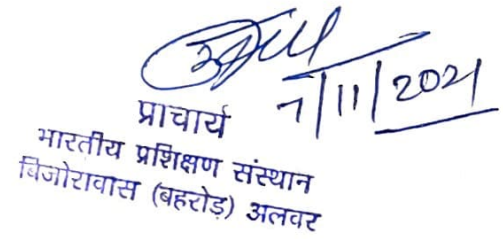 7/11/2021
प्राचार्य
भारतीय प्रशिक्षण संस्थान
बिजोरावास (बहरोड़) अलवर